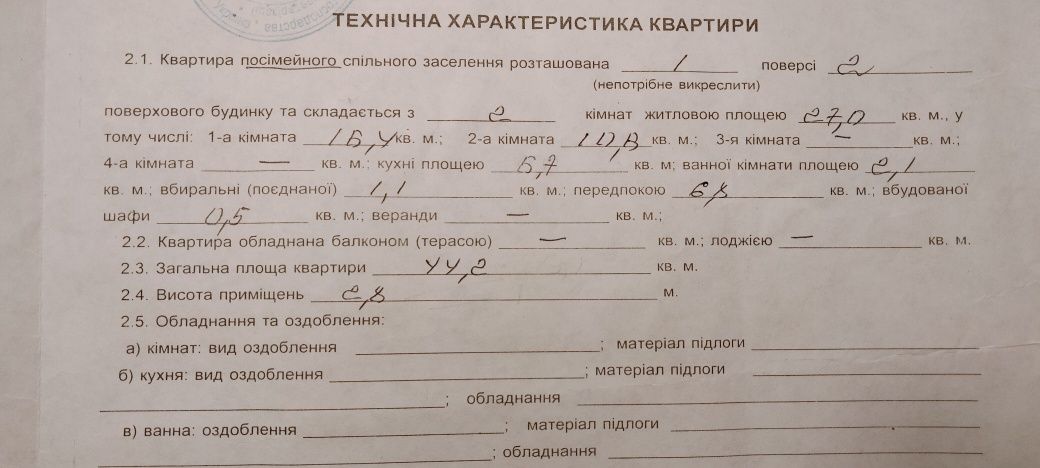 господарства
ТЕХНІЧНА ХАРАКТЕРИСТИКА КВАРТИРИ
2.1. Квартира посімейного спільного заселення розташована 1 поверсі 2
(непотрібне викреслити)
поверхового будинку та складається з 2 кімнат житловою площею 27,0 кв. м., у
тому числі: 1-а кімната 16,4 кв. м.; 2-а кімната 10,6 кв. м.; 3-я кімната — кв. м.;
4-а кімната — кв. м.; кухні площею 6,7 кв. м; ванної кімнати площею 2,1
кв. м.; вбиральні (поєднаної) 1,1 кв. м.; передпокою 6,8 кв. м.; вбудованої
шафи 0,5 кв. м.; веранди — кв. м.;
2.2. Квартира обладнана балконом (терасою) — кв. м.; лоджією — кв. м.
2.3. Загальна площа квартири 44,2 кв. м.
2.4. Висота приміщень 2,8 м.
2.5. Обладнання та оздоблення:
а) кімнат: вид оздоблення ; матеріал підлоги
б) кухня: вид оздоблення ; матеріал підлоги
; обладнання
в) ванна: оздоблення ; матеріал підлоги
; обладнання